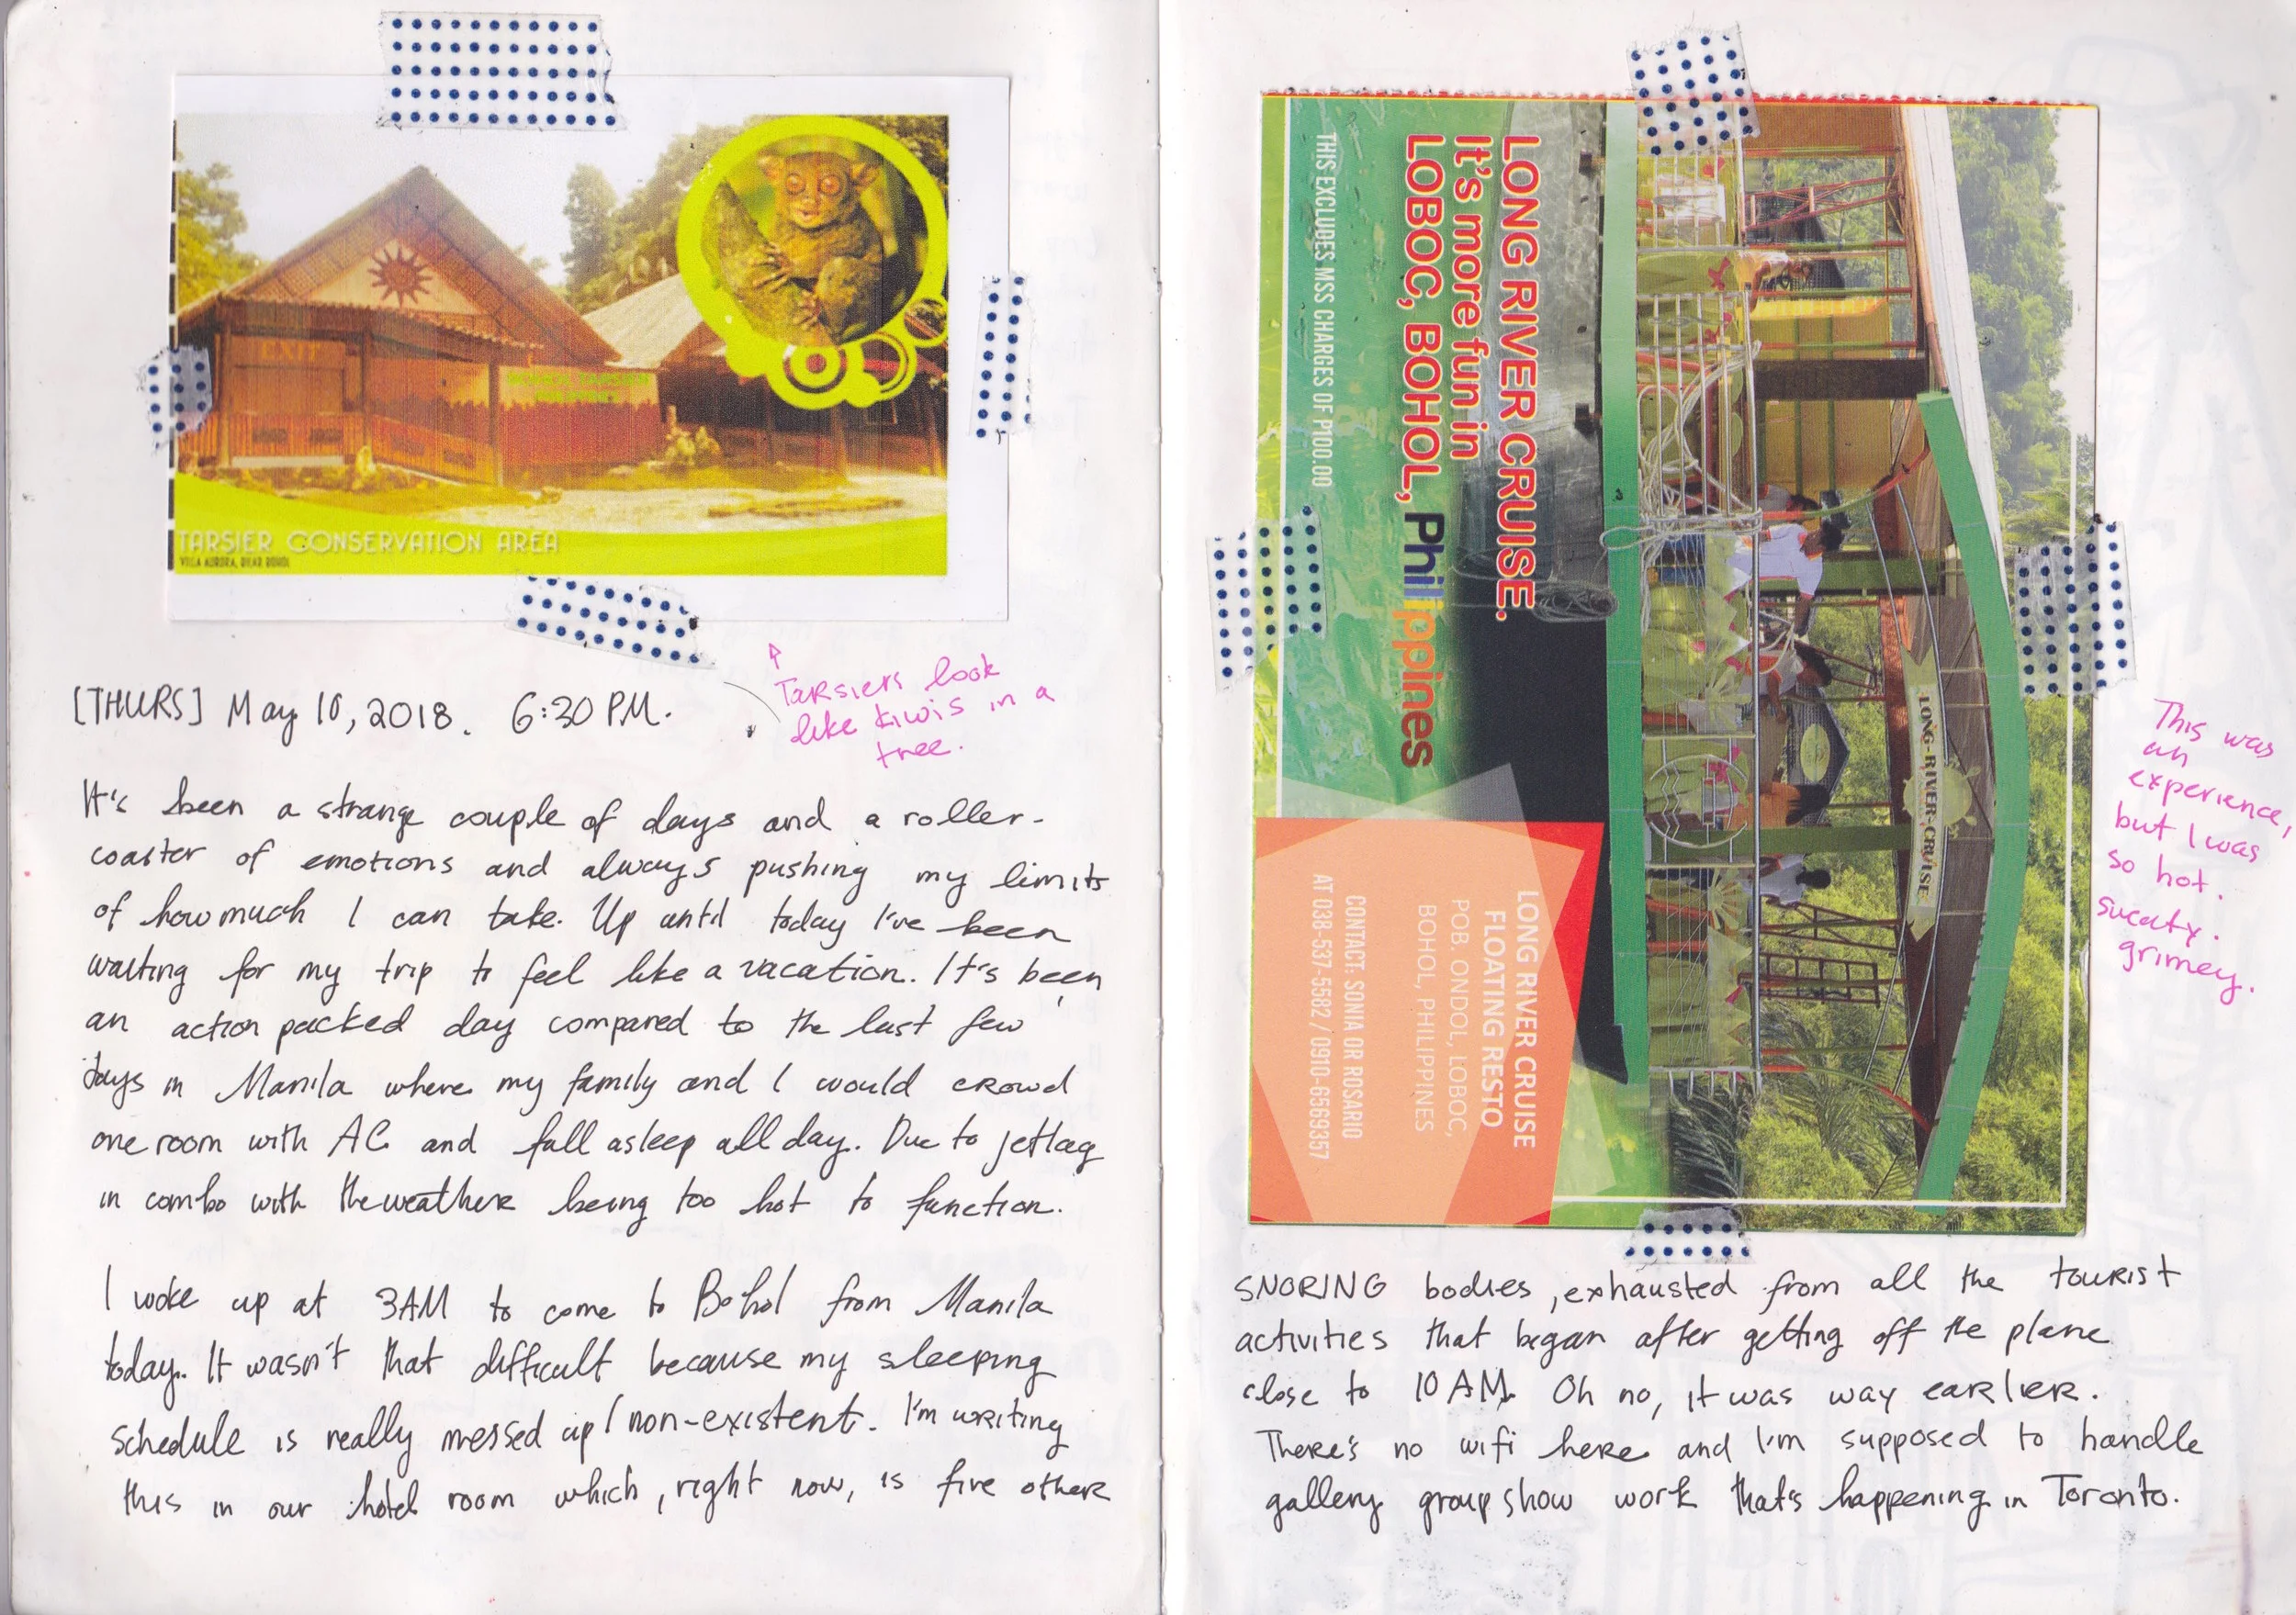 EXIT
TARSIER CONSERVATION AREA
VILLA AURORA, BILAR BOHOL
↑
Tarsiers look
like kiwis in a
tree.
[THURS] May 10, 2018. 6:30 PM.
It's been a strange couple of days and a roller-
coaster of emotions and always pushing my limits
of how much I can take. Up until today I've been
waiting for my trip to feel like a vacation. It's been
an action packed day compared to the last few
days in Manila where my family and I would crowd
one room with AC and fall asleep all day. Due to jetlag
in combo with the weather being too hot to function.
I woke up at 3AM to come to Bohol from Manila
today. It wasn't that difficult because my sleeping
schedule is really messed up / non-existent. I'm writing
this in our hotel room which, right now, is five other
LONG RIVER CRUISE.
It's more fun in
LOBOC, BOHOL, Philippines
THIS EXCLUDES MSS CHARGES OF P100.00
LONG-RIVER-CRUISE
LONG RIVER CRUISE
FLOATING RESTO
POB. ONDOL, LOBOC,
BOHOL, PHILIPPINES
CONTACT: SONIA OR ROSARIO
AT 038-537-5582 / 0910-6569357
This was
an
experience,
but I was
so hot.
sweaty.
grimey.
SNORING bodies, exhausted from all the tourist
activities that began after getting off the plane
close to 10 AM. Oh no, it was way earlier.
There's no wifi here and I'm supposed to handle
gallery group show work that's happening in Toronto.